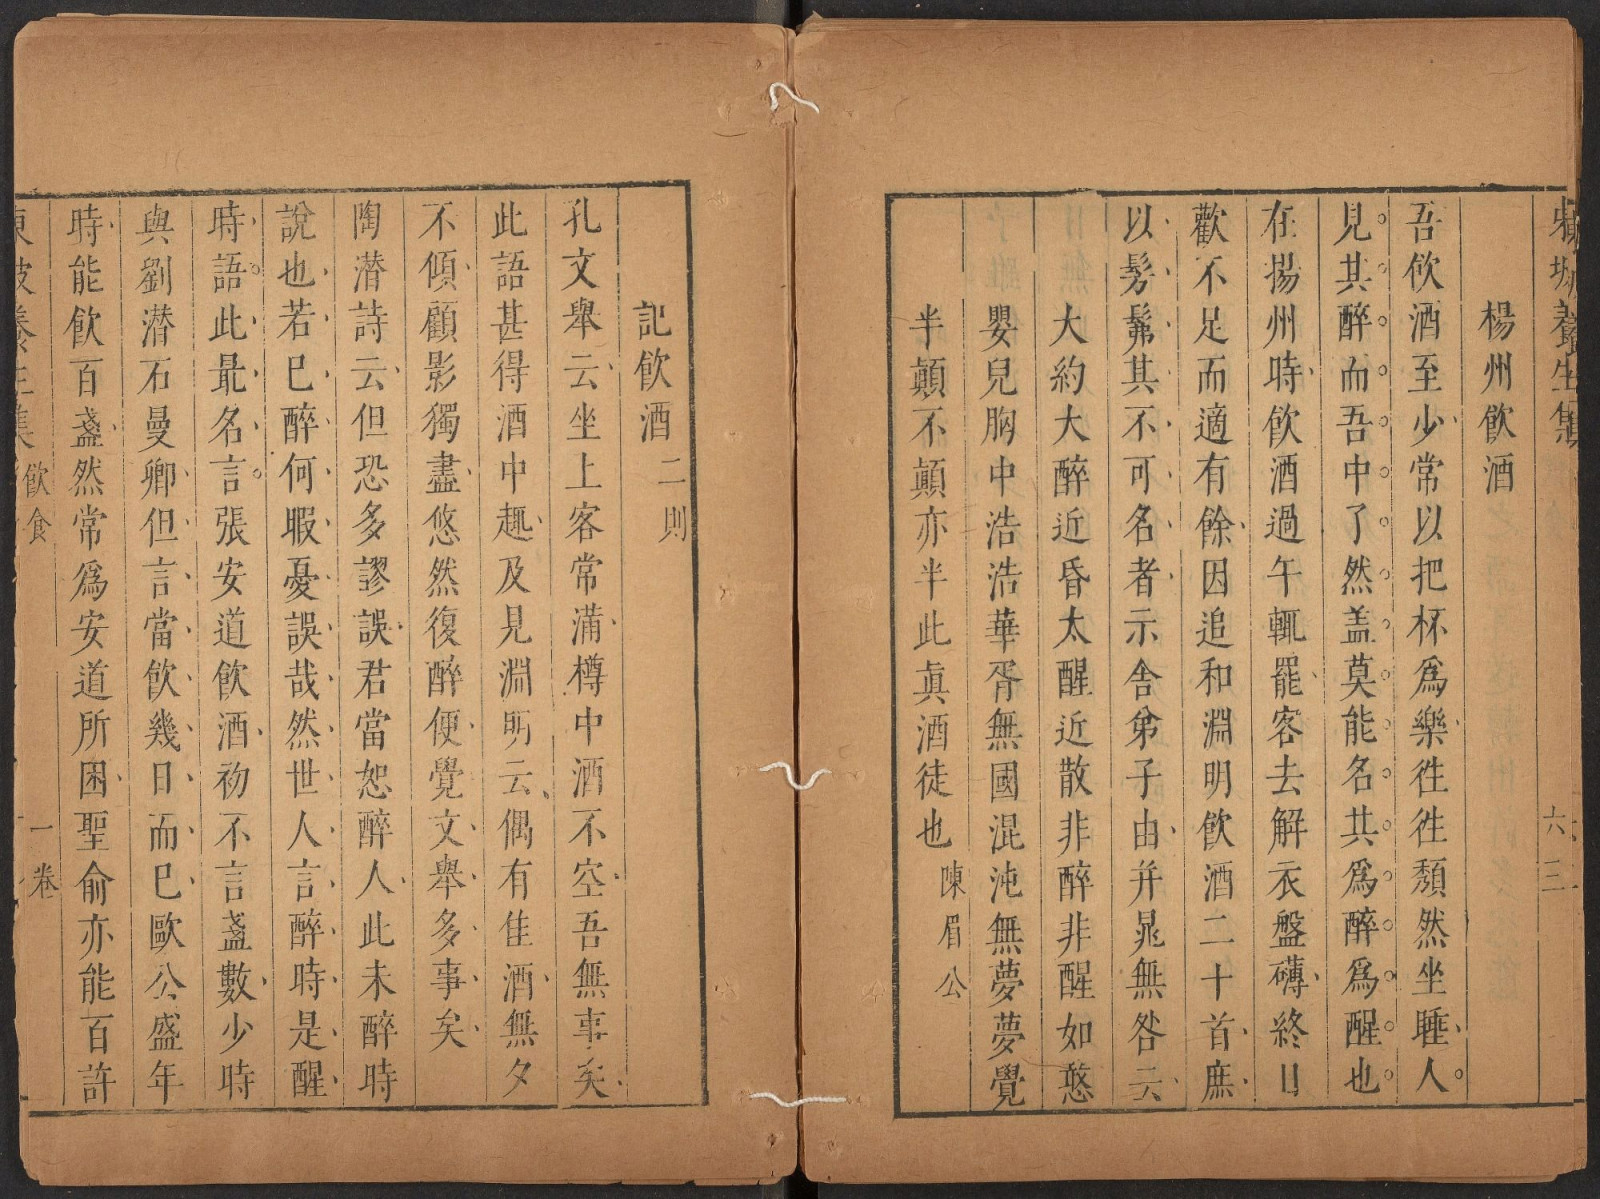 東坡養生集
六三
楊州飲酒
吾飲酒至少常以把杯爲樂徃徃頽然坐睡人
見其醉而吾中了然盖莫能名其爲醉爲醒也
在揚州時飲酒過午輒罷客去解衣盤礴終日
歡不足而適有餘因追和淵明飲酒二十首庶
以髣髴其不可名者示舍弟子由并晁無咎云
大約大醉近昏太醒近散非醉非醒如憨
嬰兒胸中浩浩華胥無國混沌無夢夢覺
半顛不顛亦半此眞酒徒也 陳眉公
記飲酒 二則
孔文舉云坐上客常滿樽中酒不空吾無事矣
此語甚得酒中趣及見淵明云偶有佳酒無夕
不傾顧影獨盡悠然復醉便覺文舉多事矣
陶潜詩云但恐多謬誤君當恕醉人此未醉時
說也若已醉何暇憂誤哉然世人言醉時是醒
時語此最名言張安道飲酒初不言盞數少時
與劉潜石曼卿但言當飲幾日而已歐公盛年
時能飲百盞然常爲安道所困聖俞亦能百許
東坡養生集 飲食 一卷